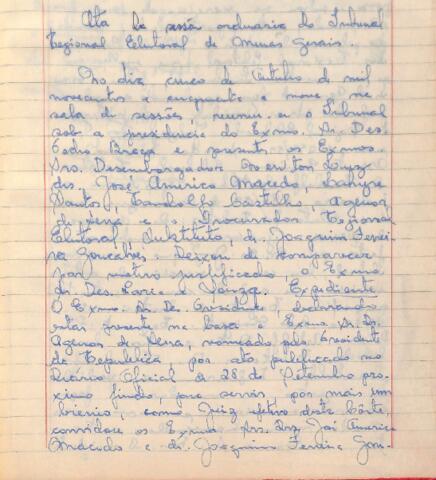 Ata da sessão ordinaria do Tribunal
Regional Eleitoral de Minas Gerais.
No dia cinco de Outubro de mil
novecentos e cincoenta e nove na
sala de sessões, reuniu-se o Tribunal
sob a presidencia do Exmo. Sr. Des.
Pedro Braga e presentes os Exmos.
Srs. Desembargador Newton Luz,
drs. José Américo Macedo,
Dantas, Candolfo Castilho, Agenor
de Sena e o Procurador Regional
Eleitoral, Substituto, dr. Joaquim Ferrei-
ra Gonçalves. Deixou de comparecer
por motivo justificado, o Exmo.
Sr. Des. e Souza. Expediente
O Exmo. Sr. Des. Presidente, declarando
estar presente na casa o Exmo. Sr. Dr.
Agenor de Sena, nomeado pelo Presidente
da Republica, por ato publicado no
Diário Oficial de 28 de Setembro pro-
ximo findo, para servir, por mais um
bienio, como Juiz efetivo desta Côrte,
convidou os Exmos. Srs. Drs. José Americo
Macedo e dr. Joaquim Ferreira Gon-